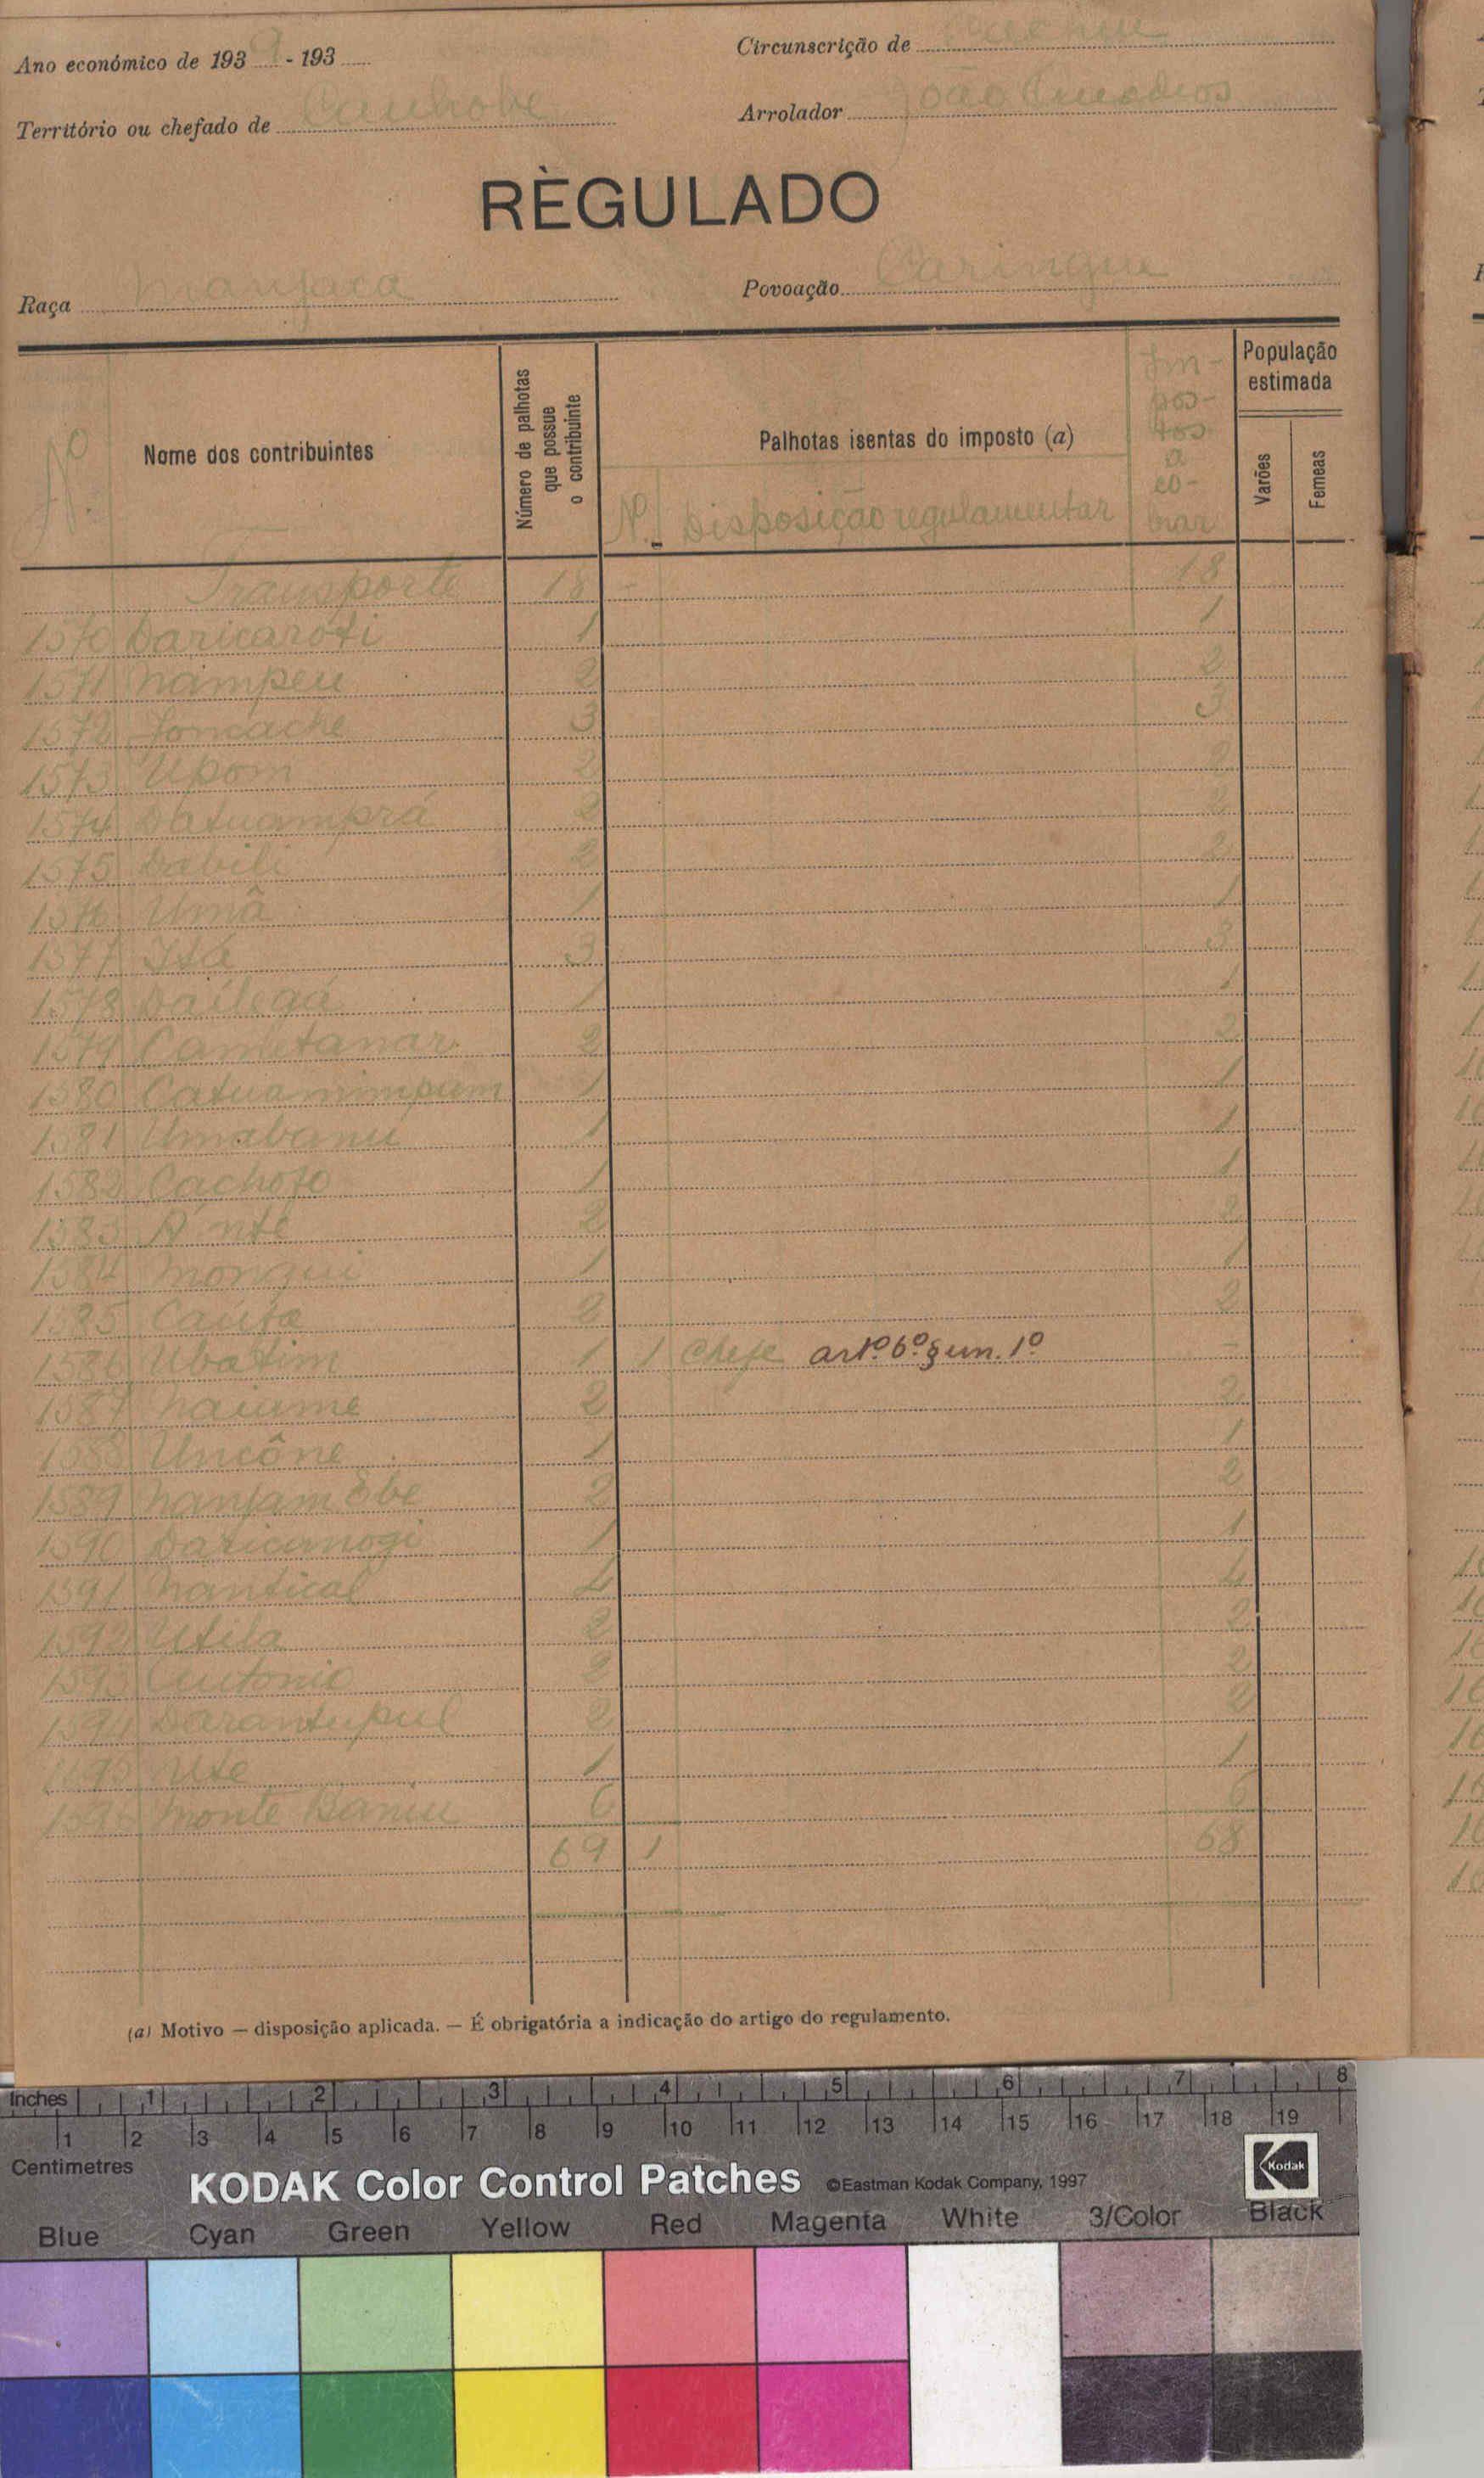 Ano económico de 1939 - 193
Circunscrição de
Território ou chefado de Cauhobe
Arrolador João
RÈGULADO
Raça Manjaca
Povoação Caringue
Nº
Nome dos contribuintes
Número de palhotas que possue o contribuinte
Palhotas isentas do imposto (a)
Nº Disposição regulamentar
Im-
pos-
tos
a
co-
brar
População estimada
Varões
Femeas
Transporte 18 - 18
1570 Daricaroti 1 1
1571 Nampeu 2 2
1572 Joncache 3 3
1573 Upom 2 2
1574 Datuamprá 2 2
1575 Dabili 2 2
1576 Umâ 1 1
1577 Itá 3 3
1578 1 1
1579 Cametanar 2 2
1580 Catuamimpum 1 1
1581 Umabanu 1 1
1582 Cachofo 1 1
1583 A'nte 2 2
1584 Mongui 1 1
1585 2 2
1586 Ubatim 1 1 Chefe artº 6º § un. 1º -
1587 Naiume 2 2
1588 Uncône 1 1
1589 Nanjam Ebe 2 2
1590 Daricamogi 1 1
1591 Nantical 4 4
1592 Utila 2 2
1593 Antonio 2 2
1594 Darantupul 2 2
1595 Ute 1 1
1596 Monte Baniu 6 6
69 1 68
(a) Motivo — disposição aplicada. — É obrigatória a indicação do artigo do regulamento.
Inches 1 2 3 4 5 6 7 8
1 2 3 4 5 6 7 8 9 10 11 12 13 14 15 16 17 18 19
Centimetres
KODAK Color Control Patches ©Eastman Kodak Company, 1997 Kodak
Blue Cyan Green Yellow Red Magenta White 3/Color Black